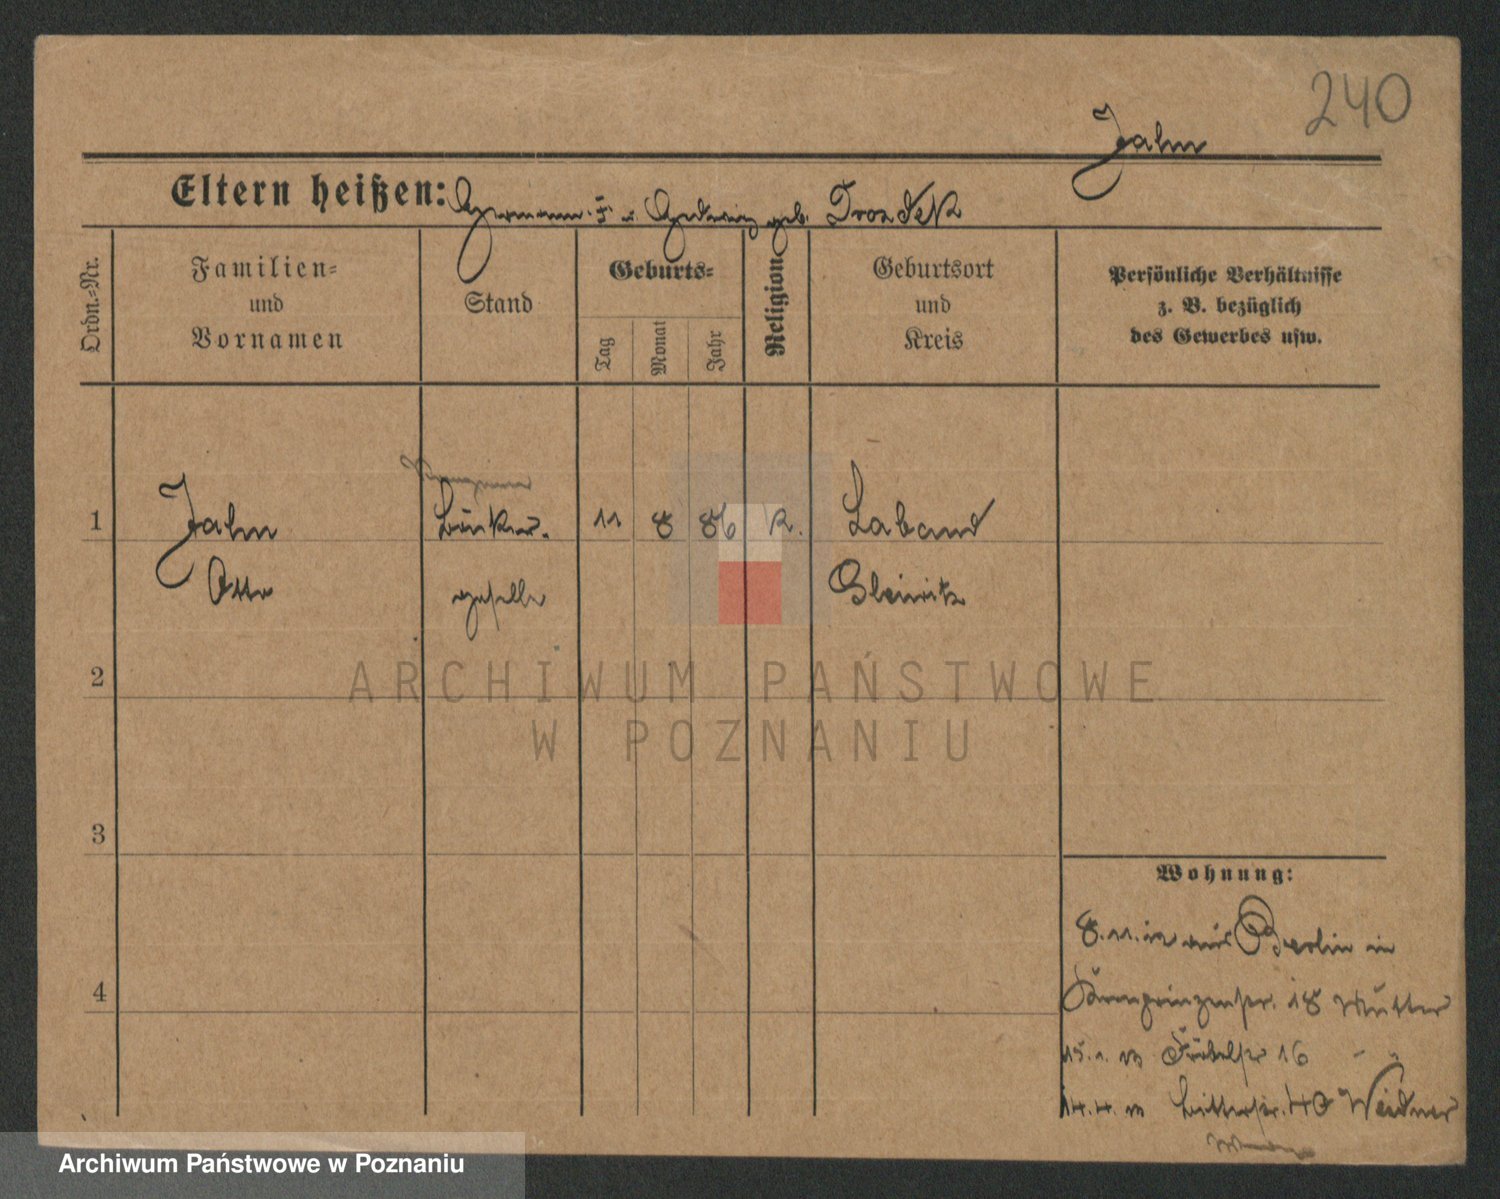 240
Jahn
Eltern heißen: Hermann J. u. Hedwig geb. Drozdek
Ordn.=Nr.
Familien= und Vornamen
Stand
Geburts=
Tag
Monat
Jahr
Religion
Geburtsort und Kreis
Persönliche Verhältnisse z. B. bezüglich des Gewerbes usw.
1 Jahn 11 8 86 K. Laband
Otto geselle Gleiwitz
2
3
4
Wohnung:
8.11.12 aus Berlin in
Kronprinzenstr. 18 Mutter
15.1.13 16
14.4.13 40 Weidner
ARCHIWUM PAŃSTWOWE
W POZNANIU
Archiwum Państwowe w Poznaniu